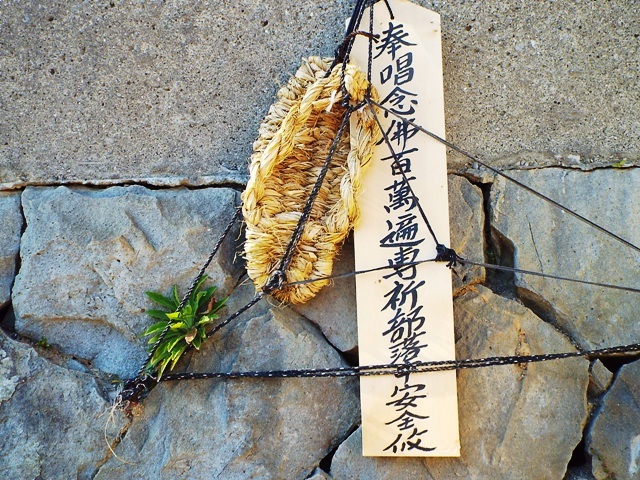 奉唱念佛百萬遍専祈部落平安全攸